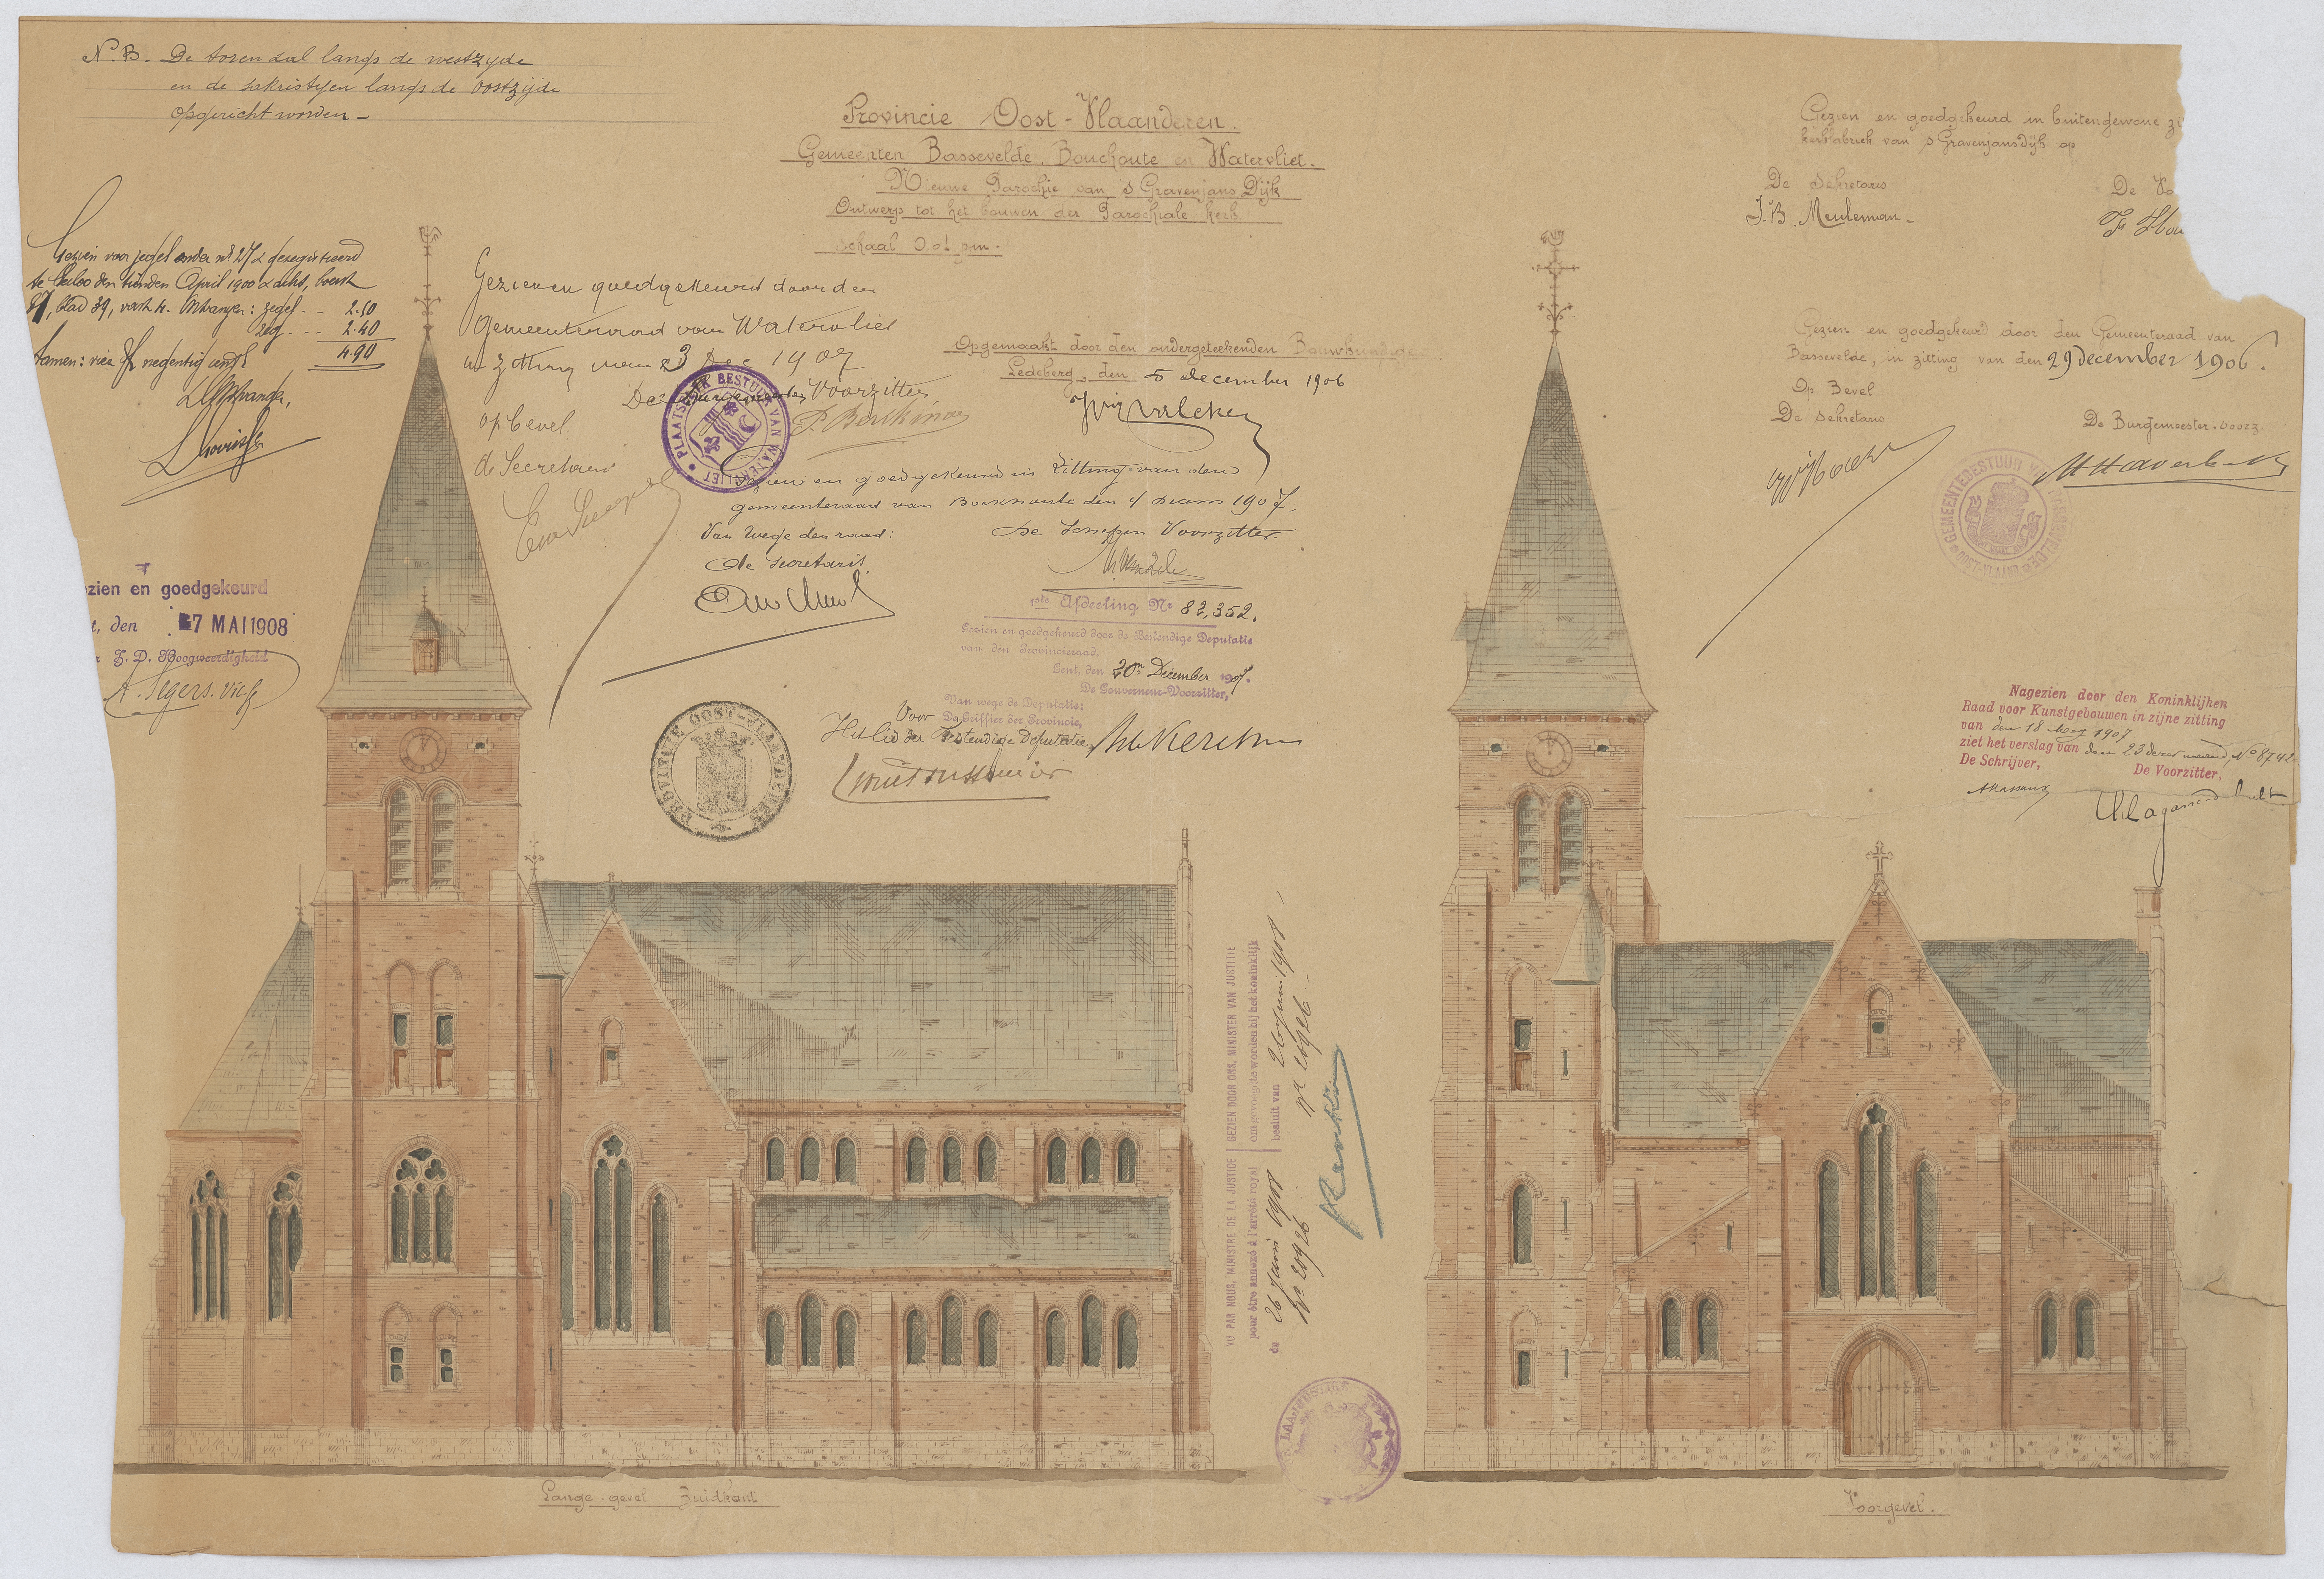 N.B. De toren zal langs de westzyde
en de sakristyen langs de oostzijde
opgericht worden -
Provincie Oost-Vlaanderen.
Gemeenten Bassevelde, Bouchoute en Watervliet.
Nieuwe Parochie van 's Gravenjans Dijk
Ontwerp tot het bouwen der Parochiale kerk.
schaal 0.01 p.m.
Gezien en goedgekeurd in buitengewone
kerkfabriek van s Gravenjansdijk op
De Sekretaris
De Vo
J.B. Meuleman -
Gezien voor zegel onder nr 272 geregistreerd
April 1900
blad 39, zegel - 2.50
2.40
Samen: vier negentig 4.90
Gezien en goedgekeurd door den
Gemeenteraad van Watervliet
in zitting van 23 Dec 1907
De Burgemeester, Voorzitter,
op bevel.
de Secretaris
PLAATSELIJK BESTUUR VAN WATERVLIET
Opgemaakt door den ondergeteekenden Bouwkundige.
Ledeberg, den 5 December 1906
Gezien en goedgekeurd door den Gemeenteraad van
Bassevelde, in zitting van den 29 December 1906.
Op Bevel
De Sekretaris
De Burgemeester-voorz.
GEMEENTEBESTUUR VAN BASSEVELDE OOST-VLAAND
Gezien en goedgekeurd in Zitting van den
gemeenteraad van Bouchoute den 4 decem 1907.
Van wege den raad:
De Schepen Voorzitter.
de Secretaris.
zien en goedgekeurd
t, den 7 MAI 1908
Z. D. Hoogweerdigheid
A. Segers. vic. g.
1ste Afdeeling Nr 82,352.
Gezien en goedgekeurd door de Bestendige Deputatie
van den Provincieraad.
Gent, den 20n December 1907.
De Gouverneur-Voorzitter,
Van wege de Deputatie:
Voor De Griffier der Provincie,
Het lid der Bestendige Deputatie
PROVINCIE OOST-VLAANDEREN
Nagezien door den Koninklijken
Raad voor Kunstgebouwen in zijne zitting
van den 18 Mey 1907
ziet het verslag van den 23 derer maand, No 8742
De Schrijver,
De Voorzitter,
VU PAR NOUS, MINISTRE DE LA JUSTICE
pour être annexé à l'arrêté royal
du 26 juin 1908
No 20926
GEZIEN DOOR ONS, MINISTER VAN JUSTITIE
om gevoegd te worden bij het koninklijk
besluit van 26 juni 1908
Nr 20926
Renkin
LA JUSTICE
Lange-gevel Zuidkant
Voorgevel.